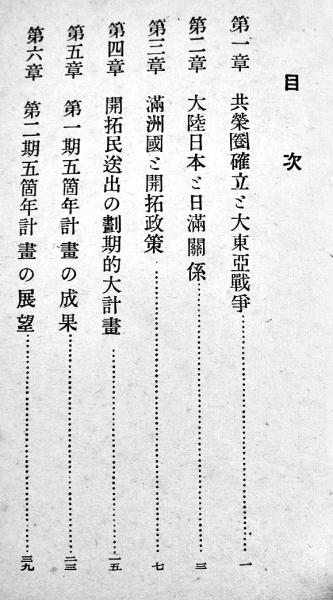 目次
第一章 共榮圈確立と大東亞戰爭……一
第二章 大陸日本と日滿關係……三
第三章 滿洲國と開拓政策……七
第四章 開拓民送出の劃期的大計畫……一五
第五章 第一期五箇年計畫の成果……二三
第六章 第二期五箇年計畫の展望……三九